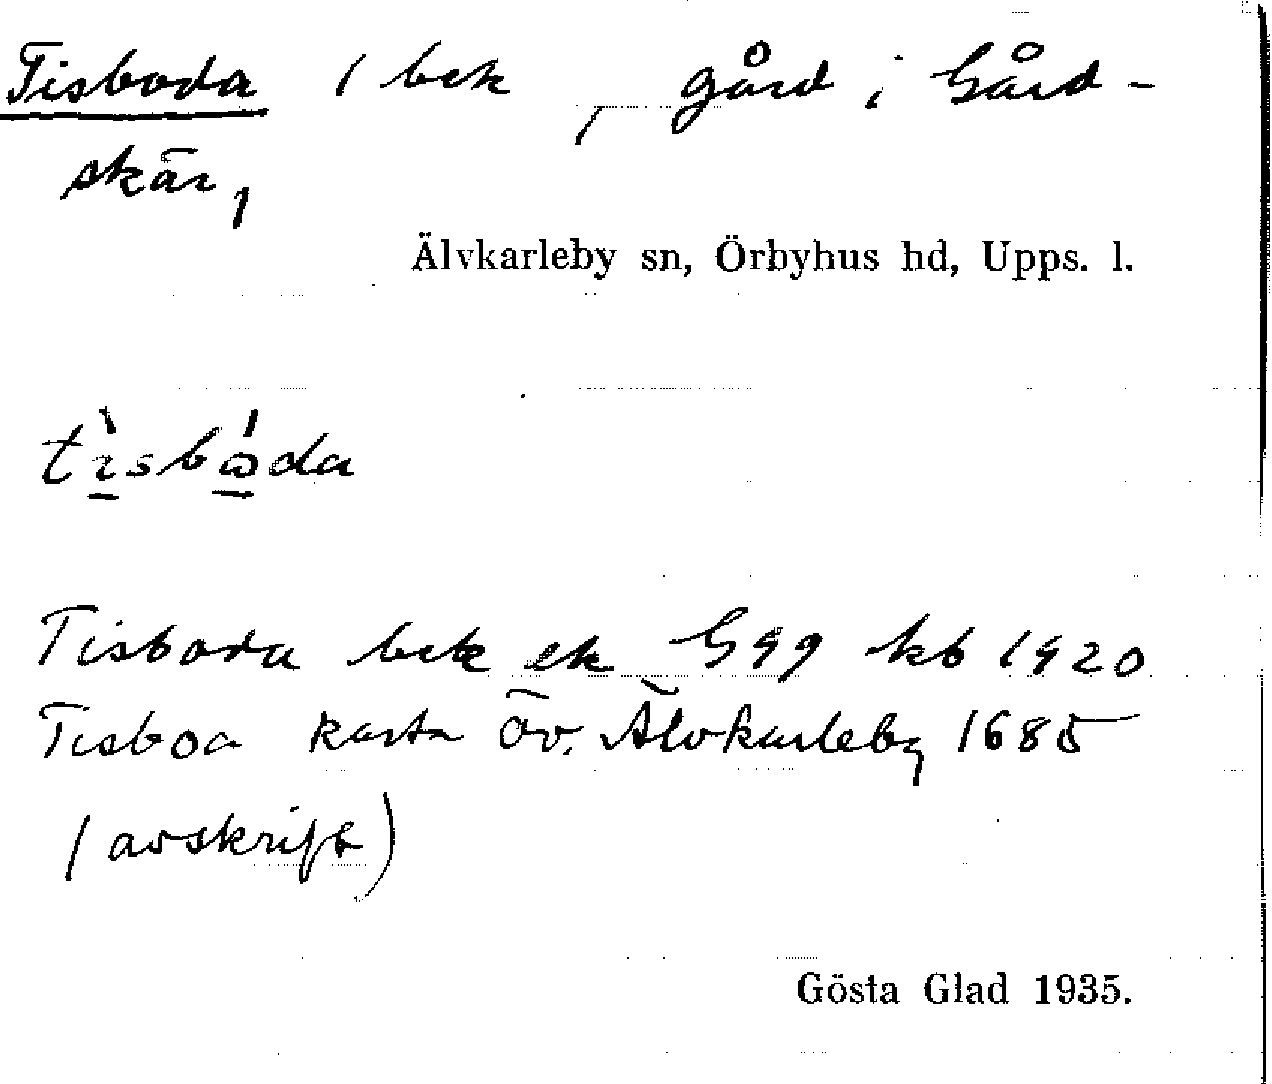 Tisboda / bek , gård i Gård-
skär,
Älvkarleby sn, Örbyhus hd, Upps. l.
tìsbǻda
Tisboda bek ek G 99 kb 1920
Tisboa karta öv. Älvkarleby 1685
(avskrift)
Gösta Glad 1935.